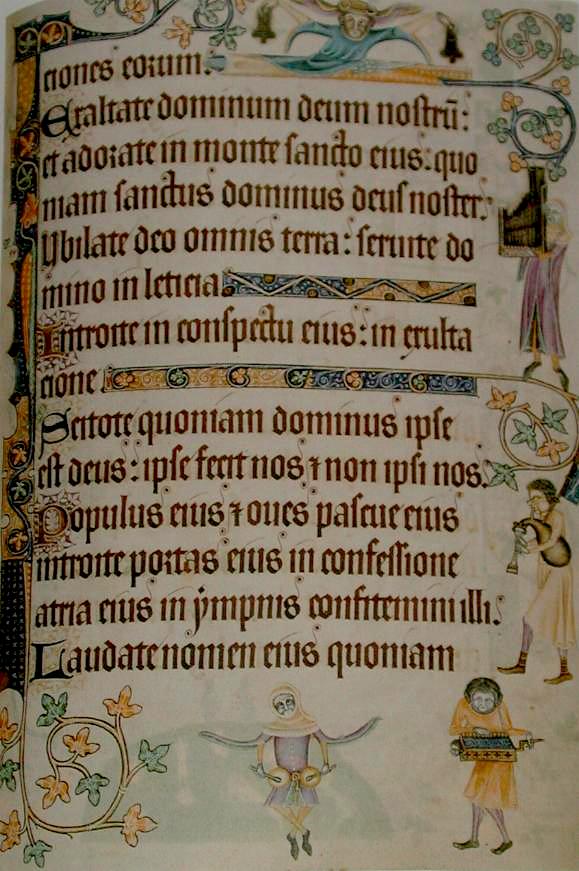 ciones eorum.
Exaltate dominum deum nostrū:
et adorate in monte sancto eius: quo
niam sanctus dominus deus noster.
Iubilate deo omnis terra: seruite do
mino in leticia.
Introite in conspectu eius: in exulta
cione
Scitote quoniam dominus ipse
est deus: ipse fecit nos ⁊ non ipsi nos.
Populus eius ⁊ oues pascue eius
introite portas eius in confessione
atria eius in ympnis confitemini illi.
Laudate nomen eius quoniam